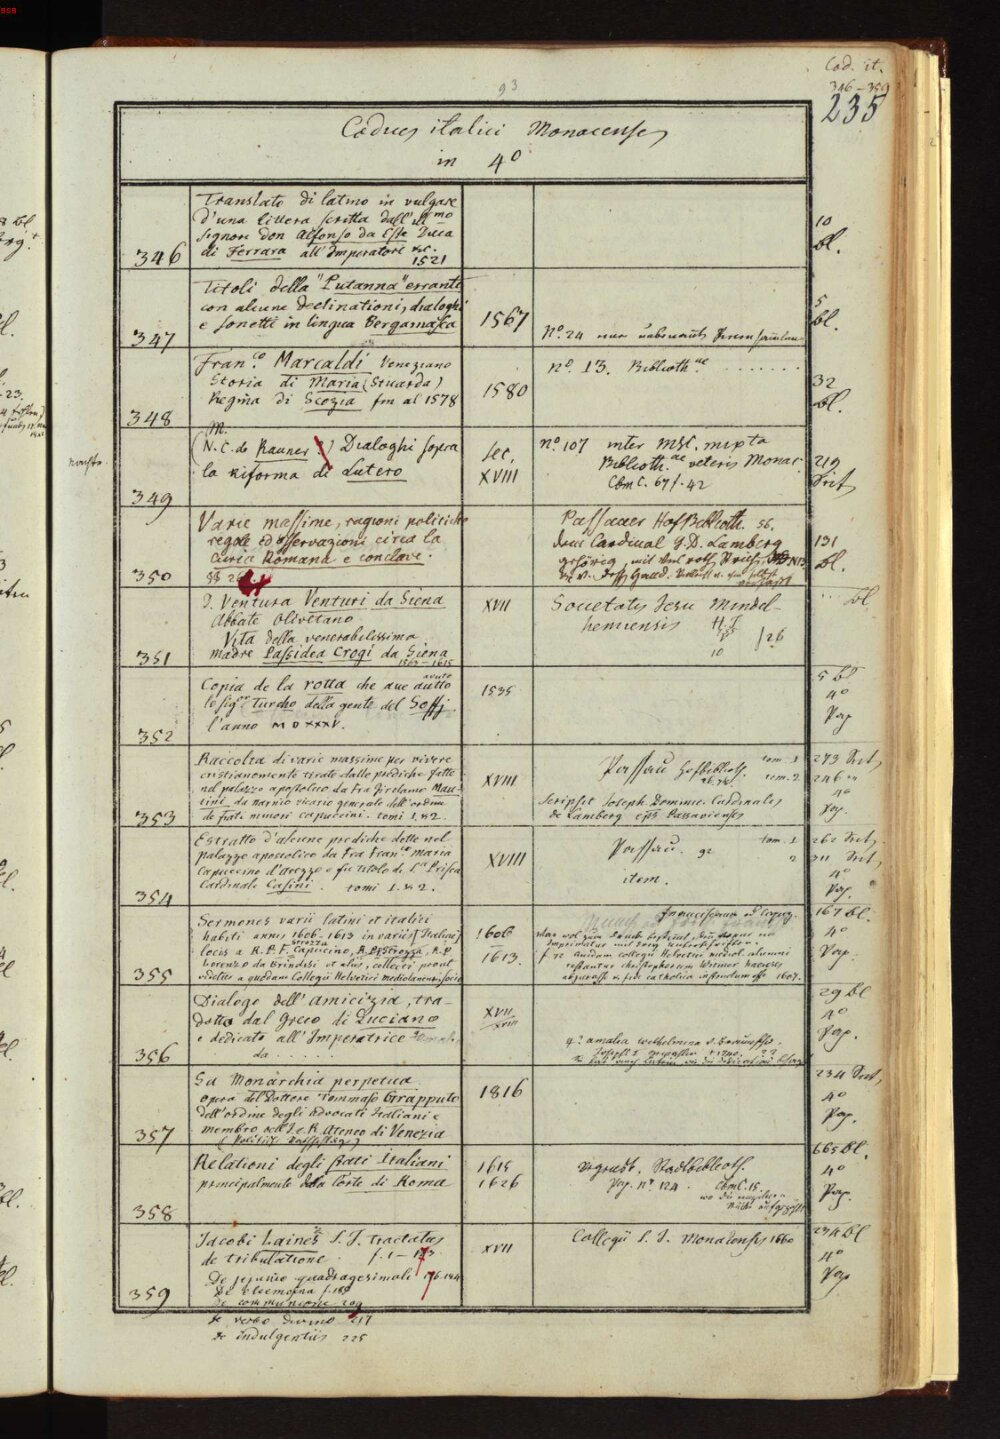 Cod. it.
346-359
235
93
Codices italici Monacenses
in 4º
346
Translato di latino in vulgare
d'una littera scritta dall'ill.mo
Signore don Alfonso da Este Duca
di Ferrara all'Imperatore &c.
1521
10
bl.
347
Titoli della "Putanna" errante
con alcune declinationi, dialoghi
e sonetti in lingua Bergamasca
1567
Nº. 24
5
bl.
348
Fran.co Marcaldi Veneziano
Storia di Maria (Stuarda)
Regina di Scozia fin al 1578
1580
nº. 13. Biblioth.ae
32
bl.
349
(N. C. de Rauner ?) Dialoghi sopra
la Riforma di Lutero
Sec.
XVIII
nº 107 inter Msc. mixta
Biblioth.ae veteris Monac.
Cbm C. 67 f. 42
219
350
Varie massime, ragioni politiche
regole ed osservazioni circa la
Curia Romana e conclave.
Passauer HofBiblioth. 56.
dem Cardinal J. D. Lamberg
131
bl.
351
D. Ventura Venturi da Siena
Abbate Olivetano
Vita della venerabilissima
madre Passidea Crogi da Siena
1564-1615
XVII
Societatis Jesu Mindel-
hemiensis
10
/26
bl.
352
Copia de la rotta che ave avuto
lo sig.or Turcho della gente del Soffj.
l'anno MDXXXV.
1535
5 bl
4º
Pap
353
Raccolta di varie massime per vivere
cristianamente tirate dalle prediche fatte
nel palazzo apostolico da Fra Girolamo Mau-
tini da Narnio vicario generale dell'ordine
de frati minori capuccini. tomi 1. & 2.
XVIII
Passau Hofbiblioth. tom. 1
tom. 2
Scripsit Joseph Dominic. Cardinalis
de Lamberg eps Passaviensis
273
246
4º
Pap.
354
Estratto d'alcune prediche dette nel
palazzo apostolico da Fra Fran.co Maria
Capuccino d'Arezzo e fu titolo di S.ta Prisca
Cardinale Casini. tomi 1. & 2.
XVIII
Passau. 92 tom. 1
2
item.
262
311
4º
Pap.
355
Sermones varii latini et italici
habiti annis 1606-1613 in variis [Italiae]
locis a R. P. F. Capucino, R. P. Strozza, R. P.
Lorenzo da Brindisi et aliis, collecti prout
videtur a quodam Collegii Helvetici mediolanensis socio
1606
1613.
f. 72 Quidam collegii Helvetici mediol. alumni
testantur Christophorum Werner haereses
abjurasse & fide catholica instructum esse 1607.
167 bl.
4º
Pap.
356
Dialogo dell'amicizia, tra-
dotto dal Greco di Luciano
e dedicato all'Imperatrice
da . . . . . .
XVII
XVIII
q.? Amalia Wilhelmina v. Braunschw.
29 bl
4º
Pap.
357
La Monarchia perpetua
opera del Dottore Tommaso Grappute
dell'ordine degli Advocati Italiani e
membro dell'I. e R. Ateneo di Venezia
1816
234
4º
Pap.
358
Relationi degli Stati Italiani
principalmente della Corte di Roma
1615
1626
Stadtbiblioth.
Pap. nº 124. Cbm C. 15
665 bl.
4º
Pap.
359
Jacobi Lainez S. J. tractatus
de tribulatione. f. 1-173
De jejunio quadragesimali 176-184
De eleemosina f. 189
de communione 209
de verbo divino 217
de indulgentiis 225
XVII
Collegii S. J. Monacensis 1660
234 bl
4º
Pap